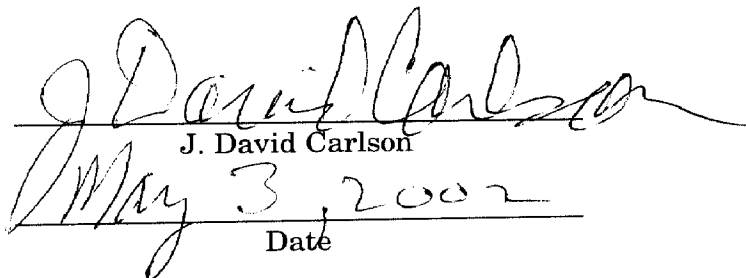 J David Carlson
J. David Carlson
May 3, 2002
Date